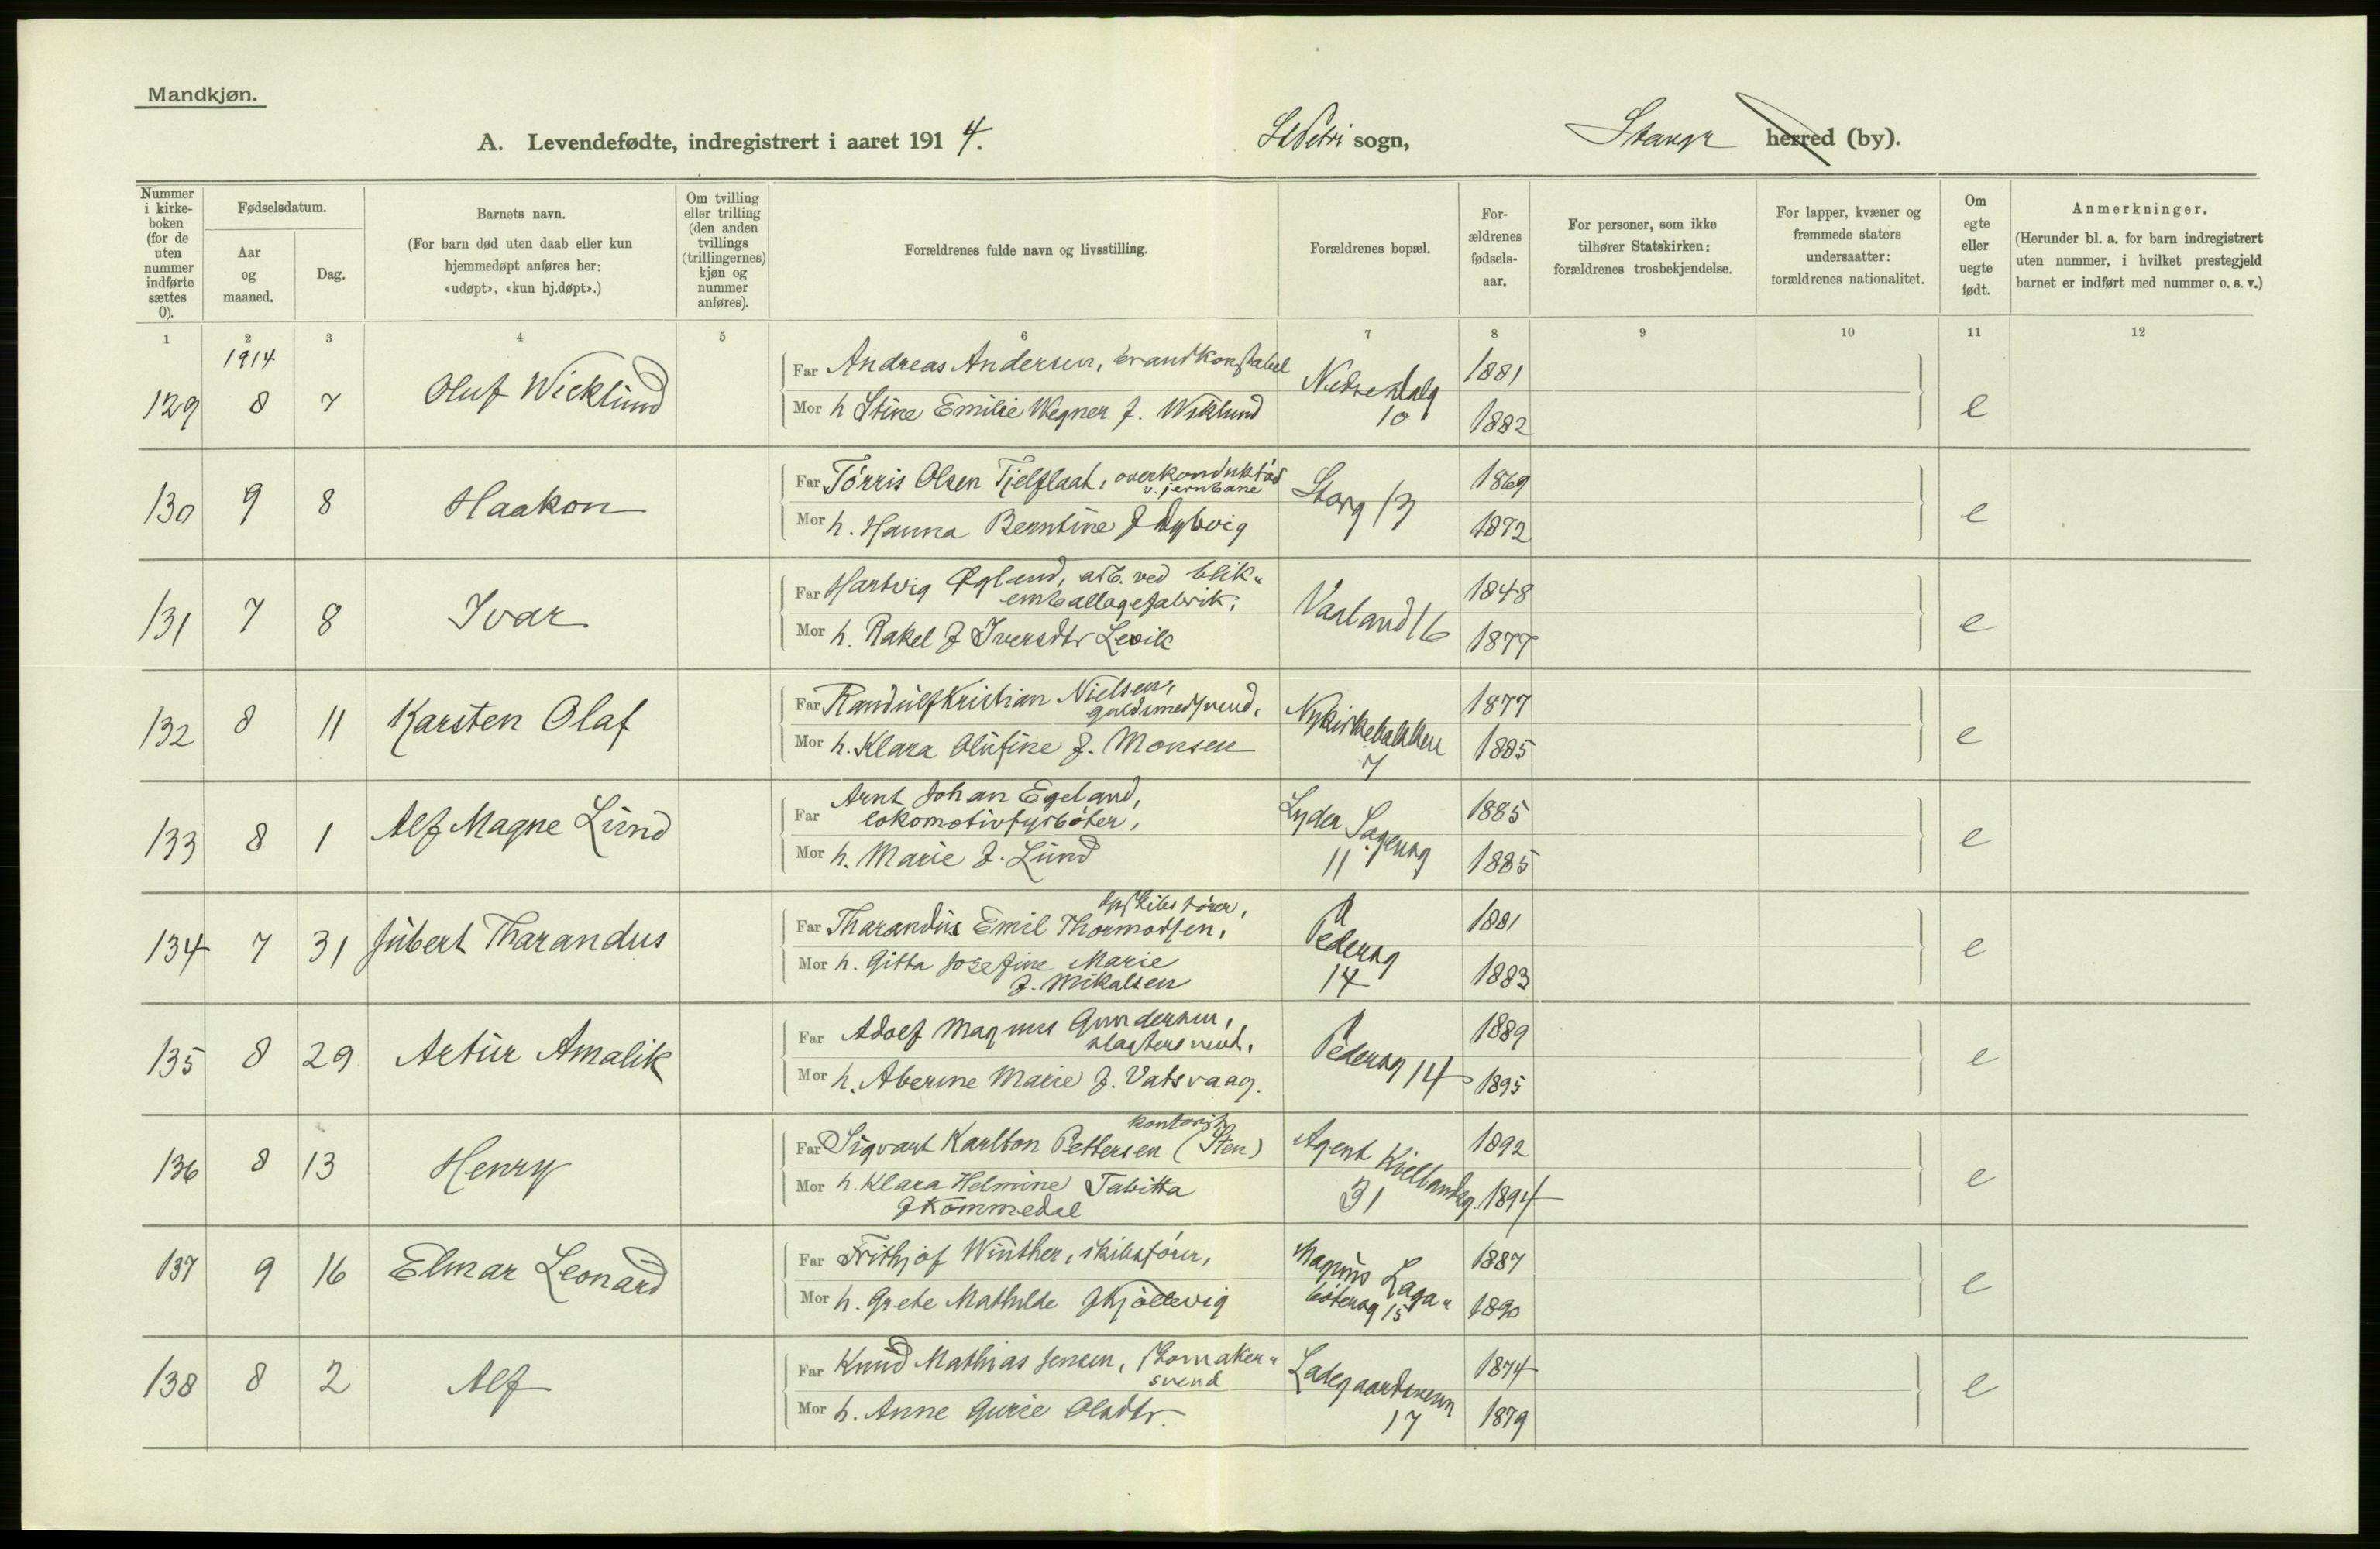 Mandkjøn.
A. Levendefødte, indregistrert i aaret 1914. St Petri sogn, Stavgr herred (by).
Nummer i kirke-boken (for de uten nummer indførte sættes 0).
Fødselsdatum.
Aar og maaned.
Dag.
Barnets navn.
(For barn død uten daab eller kun hjemmedøpt anføres her: «udøpt», «kun hj.døpt».)
Om tvilling eller trilling (den anden tvillings (trillingernes) kjøn og nummer anføres).
Forældrenes fulde navn og livsstilling.
Forældrenes bopæl.
For-ældrenes fødsels-aar.
For personer, som ikke tilhører Statskirken: forældrenes trosbekjendelse.
For lapper, kvæner og fremmede staters undersaatter: forældrenes nationalitet.
Om egte eller uegte født.
Anmerkninger.
(Herunder bl. a. for barn indregistrert uten nummer, i hvilket prestegjeld barnet er indført med nummer o. s. v.)
1 2 3 4 5 6 7 8 9 10 11 12
1914
129 8 7 Oluf Wicklund Far Andreas Andersen, brandkonstabel Nedre Dalg 1881
Mor h Stine Emilie Wegner f. Wiklund 10 1882 e
130 9 8 Haakon Far Tørris Olsen Tjelflaat, overkonduktør Storg 13 1869
v. jernbane
Mor h. Hanna Berntine f Dybvig 1872 e
131 7 8 Ivar Far Hartvig Øgland, arb. ved blik" Vaaland 16 1848
emballagefabrik,
Mor h. Rakel f Iversdtr Levik 1877 e
132 8 11 Karsten Olaf Far Randulf Kristian Nielsen, Nykirkebakken 1877
guldsmedsvend,
Mor h. Klara Olufine f. Monsen 7 1885 e
133 8 1 Alf Magne Lund Far Arnt Johan Egeland, Lyder Sagensg 1885
lokomotivfyrbøter,
Mor h. Marie f. Lund 11 1885 e
134 7 31 Jubert Tharandus Far Tharandus Emil Thormodsen, Pedersg 1881
dpskibsfører,
Mor h. Gitta Josefine Marie 14 1883 e
f. Mikalsen
135 8 29 Artur Amalik Far Adolf Magnus Gundersen, Pedersg 14 1889
slagtersvend,
Mor h. Aberine Marie f. Vatsvaag. 1895 e
136 8 13 Henry Far Sigvart Karlton Pettersen (Sten) Agent Kiellandsg. 1892
kontorist
Mor h. Klara Helmine Tabitta 31 1894 e
f Kommedal
137 9 16 Elmar Leonard Far Frithjof Winther, skibsfører, Magnus Laga" 1887
Mor h. Grete Mathilde f Kjøllevig bøtersg 15 1890 e
138 8 2 Alf Far Knud Mathias Jensen, skomaker" Ladegaardsveien 1874
svend
Mor h. Anne Gurie Olsdtr. 17 1879 e